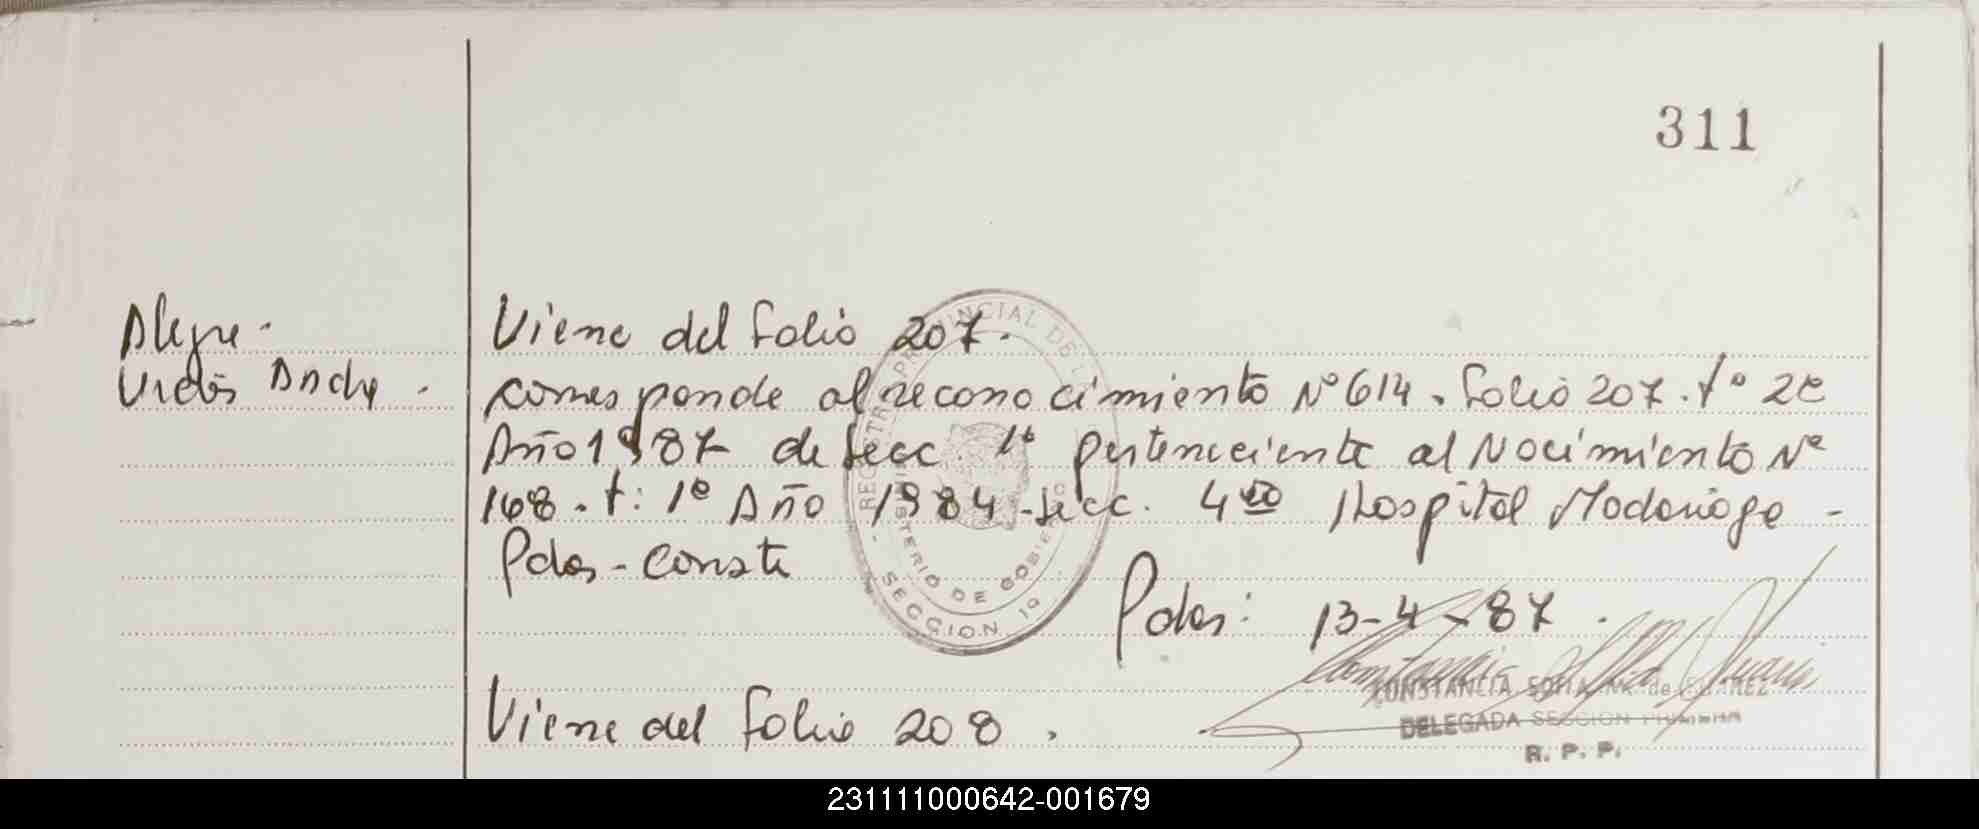 311
Alegre.
Viene del folio 207.
corresponde al reconocimiento Nº 614. folio 207. tº 2º
Año 1987 de secc. 1ª perteneciente al Nacimiento Nº
168. t: 1º Año 1984 - secc. 4ta Hospital Madariaga -
Pdas - Conste
Pdas: 13-4-87.
REGISTRO PROVINCIAL DE LA
MINISTERIO DE GOBIERNO
SECCION 1ª
CONSTANCIA SOFIA de SUAREZ
DELEGADA SECCION PRIMERA
R. P. P.
Viene del folio 208.
231111000642-001679